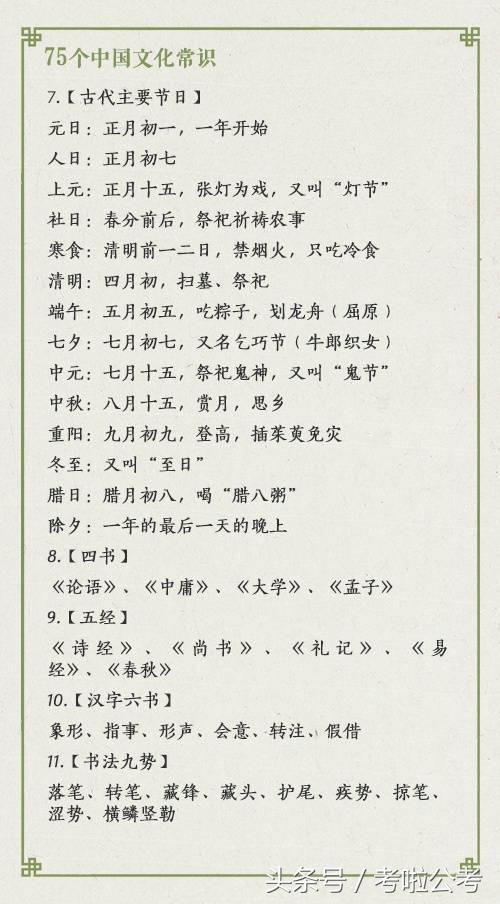 75个中国文化常识
7.【古代主要节日】
元日：正月初一，一年开始
人日：正月初七
上元：正月十五，张灯为戏，又叫“灯节”
社日：春分前后，祭祀祈祷农事
寒食：清明前一二日，禁烟火，只吃冷食
清明：四月初，扫墓、祭祀
端午：五月初五，吃粽子，划龙舟（屈原）
七夕：七月初七，又名乞巧节（牛郎织女）
中元：七月十五，祭祀鬼神，又叫“鬼节”
中秋：八月十五，赏月，思乡
重阳：九月初九，登高，插茱萸免灾
冬至：又叫“至日”
腊日：腊月初八，喝“腊八粥”
除夕：一年的最后一天的晚上
8.【四书】
《论语》、《中庸》、《大学》、《孟子》
9.【五经】
《诗经》、《尚书》、《礼记》、《易
经》、《春秋》
10.【汉字六书】
象形、指事、形声、会意、转注、假借
11.【书法九势】
落笔、转笔、藏锋、藏头、护尾、疾势、掠笔、
涩势、横鳞竖勒
头条号 / 考啦公考